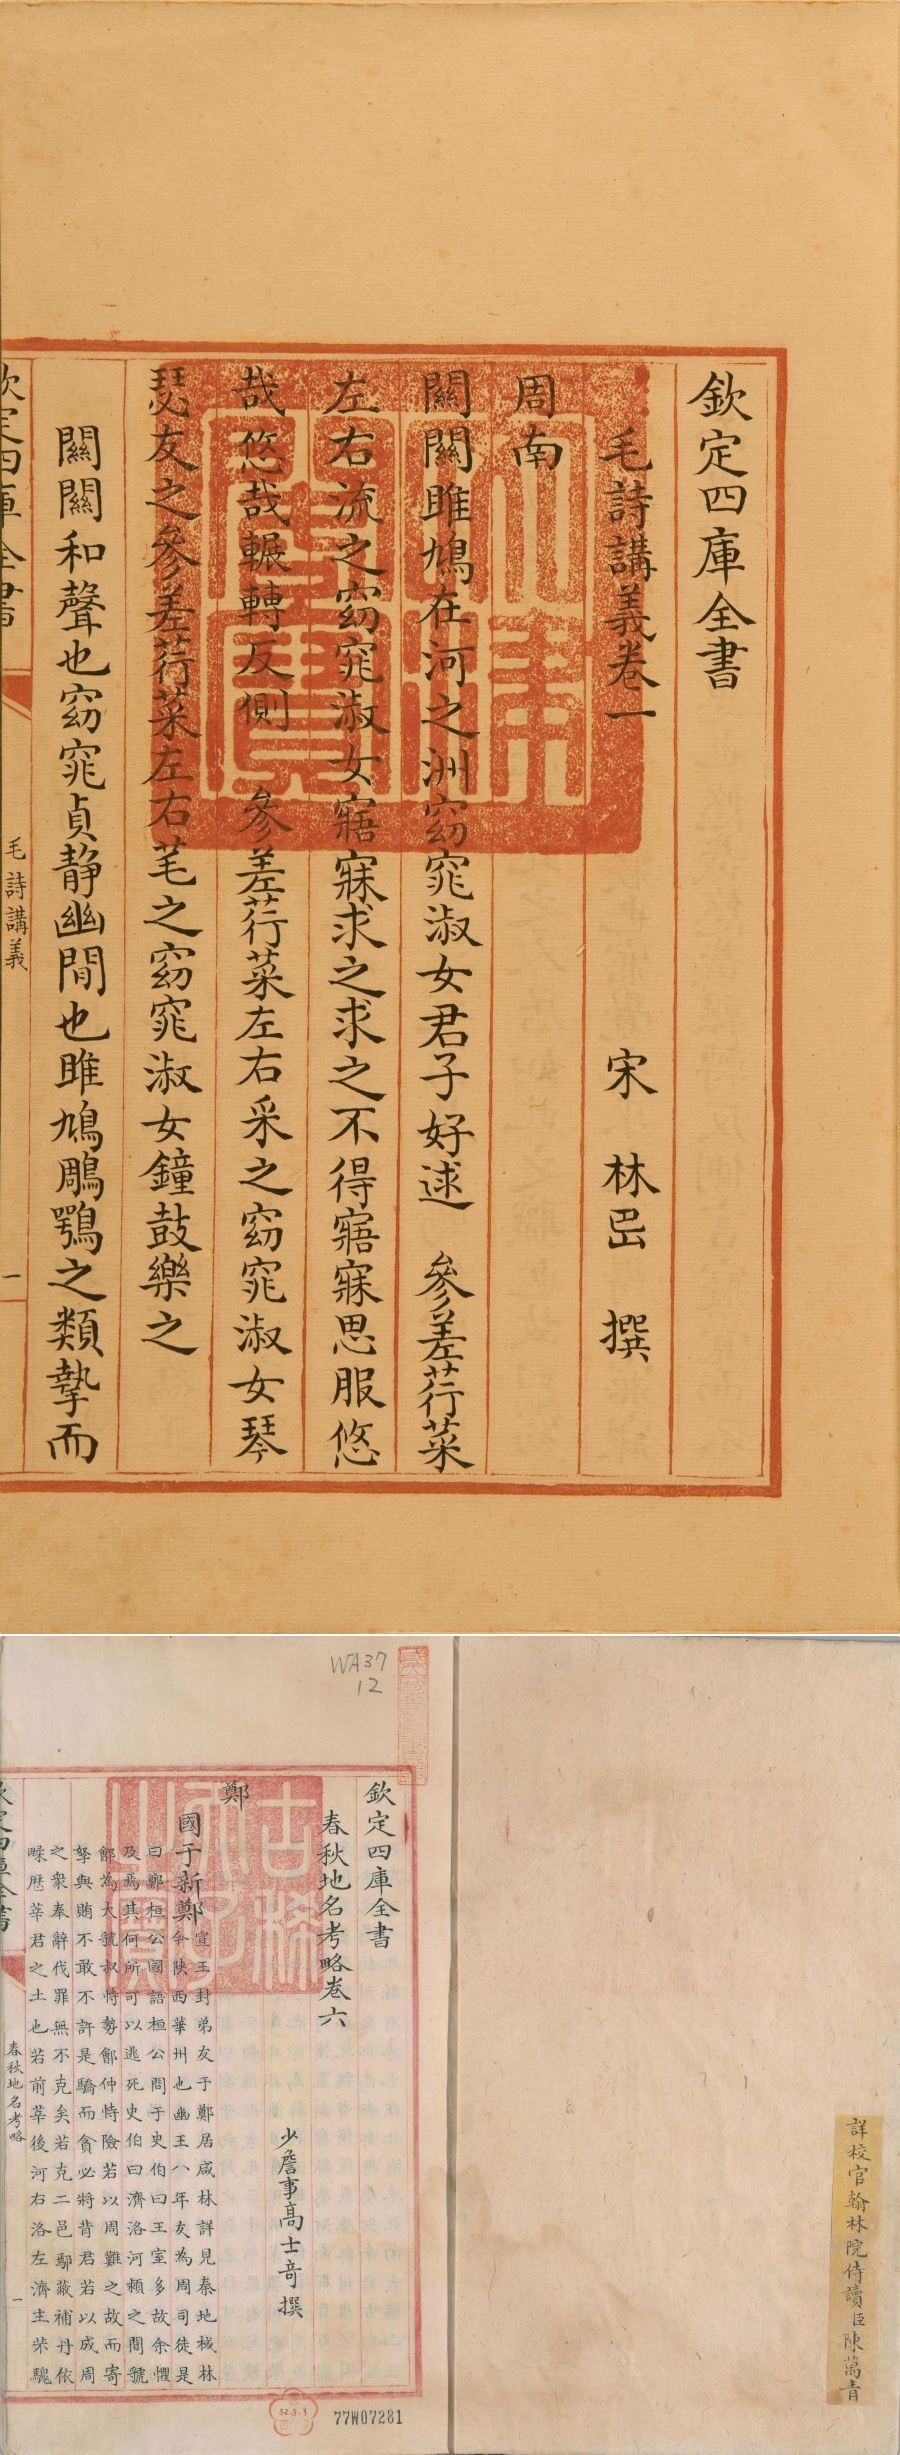 欽定四庫全書
毛詩講義卷一
宋 林岊 撰
周南
關關雎鳩在河之洲窈窕淑女君子好逑 參差荇菜
左右流之窈窕淑女寤寐求之求之不得寤寐思服悠
哉悠哉輾轉反側 參差荇菜左右采之窈窕淑女琴
瑟友之參差荇菜左右芼之窈窕淑女鐘鼓樂之
關關和聲也窈窕貞静幽閒也雎鳩鵰鶚之類摯而
欽定四庫全書
毛詩講義
一
詳校官翰林院侍讀臣陳萬青
WA37
12
欽定四庫全書
春秋地名考略卷六
少詹事高士奇撰
鄭
國于新鄭
宣王封弟友于鄭居咸林詳見秦地棫林
今陜西華州也幽王八年友為周司徒是
曰鄭桓公國語桓公問于史伯曰王室多故余懼
及焉其何所可以逃死史伯曰濟洛河頴之間虢
鄶為大虢叔恃勢鄶仲恃險若以周難之故而寄
孥與賄不敢不許是驕而貪必將背君若以成周
之衆奉辭伐罪無不克矣若克二邑鄢蔽補丹依
㽥歷莘君之土也若前莘後河右洛左濟主芣騩
欽定四庫全書
春秋地名考略
一
52.3.1
77W07281